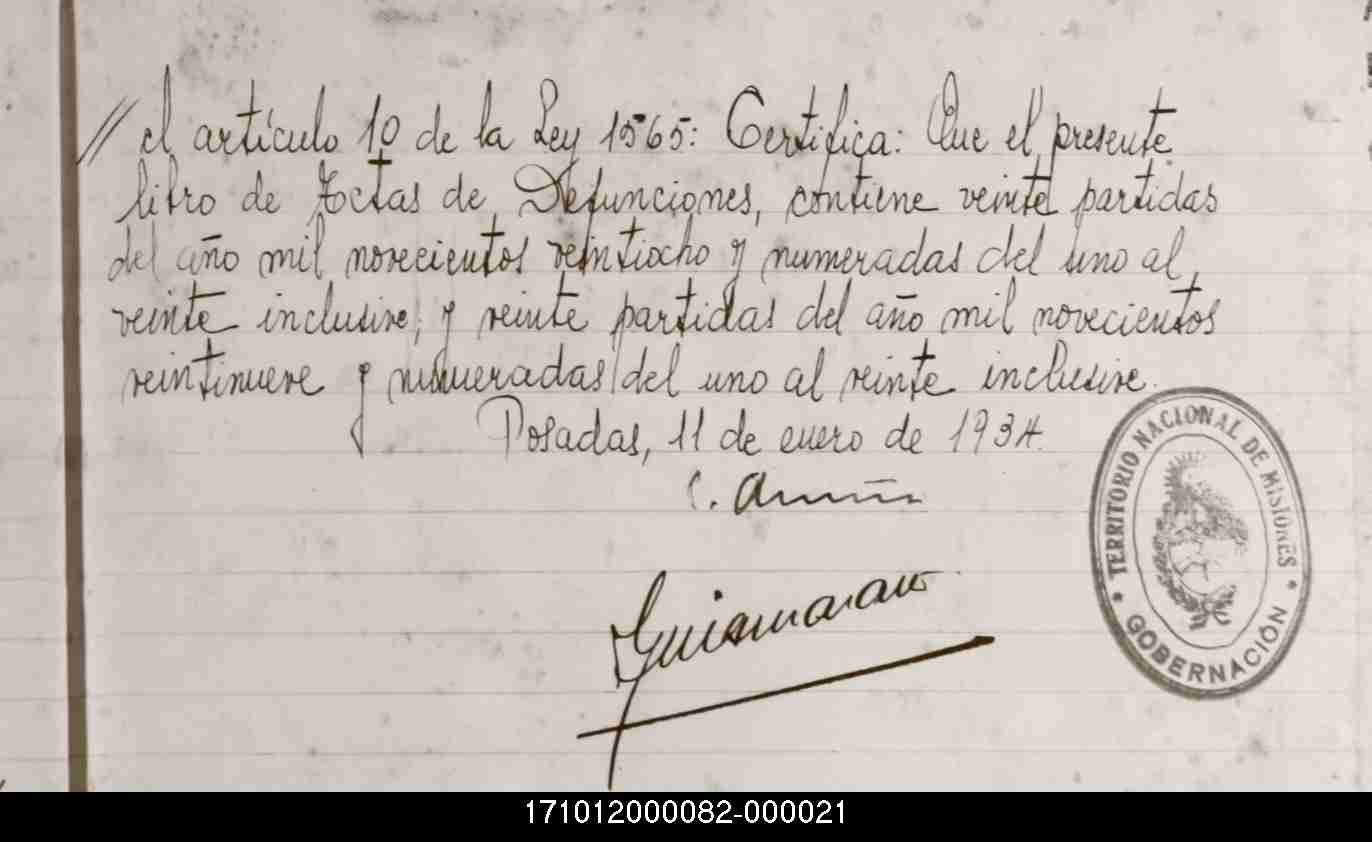 // el artículo 10 de la Ley 1565: Certifica: Que el presente
libro de Actas de Defunciones, contiene veinte partidas
del año mil novecientos veintiocho y numeradas del uno al
veinte inclusive, y veinte partidas del año mil novecientos
veintinueve y numeradas del uno al veinte inclusive.
Posadas, 11 de enero de 1934.
C.
TERRITORIO NACIONAL DE MISIONES
GOBERNACIÓN
171012000082-000021